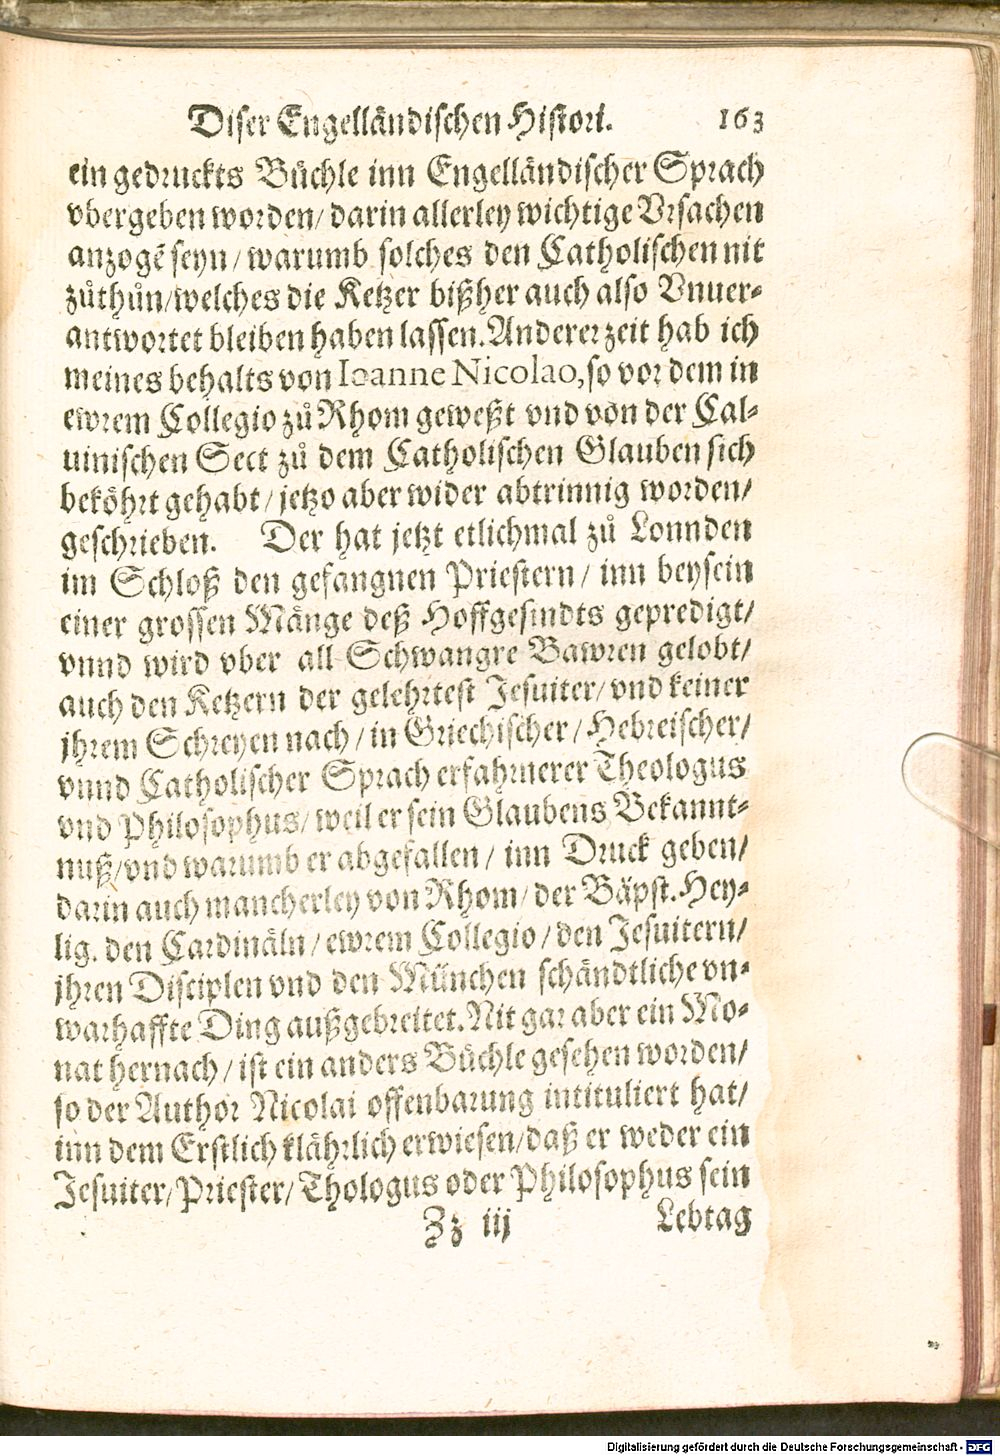 Diser Engelländischen Histori. 163
ein gedruckts Büchle inn Engelländischer Sprach
vbergeben worden/ darin allerley wichtige Vrsachen
anzogẽ seyn/ warumb solches den Catholischen nit
zůthůn/ welches die Ketzer bißher auch also Vnuer-
antwortet bleiben haben lassen. Anderer zeit hab ich
meines behalts von Ioanne Nicolao, so vor dem in
ewrem Collegio zů Rhom geweßt vnd von der Cal-
uinischen Sect zů dem Catholischen Glauben sich
beköhrt gehabt/ jetzo aber wider abtrinnig worden/
geschrieben. Der hat jetzt etlichmal zů Lonnden
im Schloß den gefangnen Priestern/ inn beysein
einer grossen Mänge deß Hoffgesindts gepredigt/
vnnd wird vber all Schwangre Bawren gelobt/
auch den Ketzern der gelehrtest Jesuiter/ vnd keiner
jhrem Schreyen nach/ in Griechischer/ Hebreischer/
vnnd Catholischer Sprach erfahrnerer Theologus
vnd Philosophus/ weil er sein Glaubens Bekannt-
nuß/ vnd warumb er abgefallen/ inn Druck geben/
darin auch mancherley von Rhom/ der Bäpst. Hey-
lig. den Cardinäln/ ewrem Collegio/ den Jesuitern/
jhren Disciplen vnd den München schändtliche vn-
warhaffte Ding außgebreitet. Nit gar aber ein Mo-
nat hernach/ ist ein anders Büchle gesehen worden/
so der Author Nicolai offenbarung intituliert hat/
inn dem Erstlich klährlich erwiesen/ daß er weder ein
Jesuiter/ Priester/ Thologus oder Philosophus sein
Zz iij Lebtag
Digitalisierung gefördert durch die Deutsche Forschungsgemeinschaft - DFG